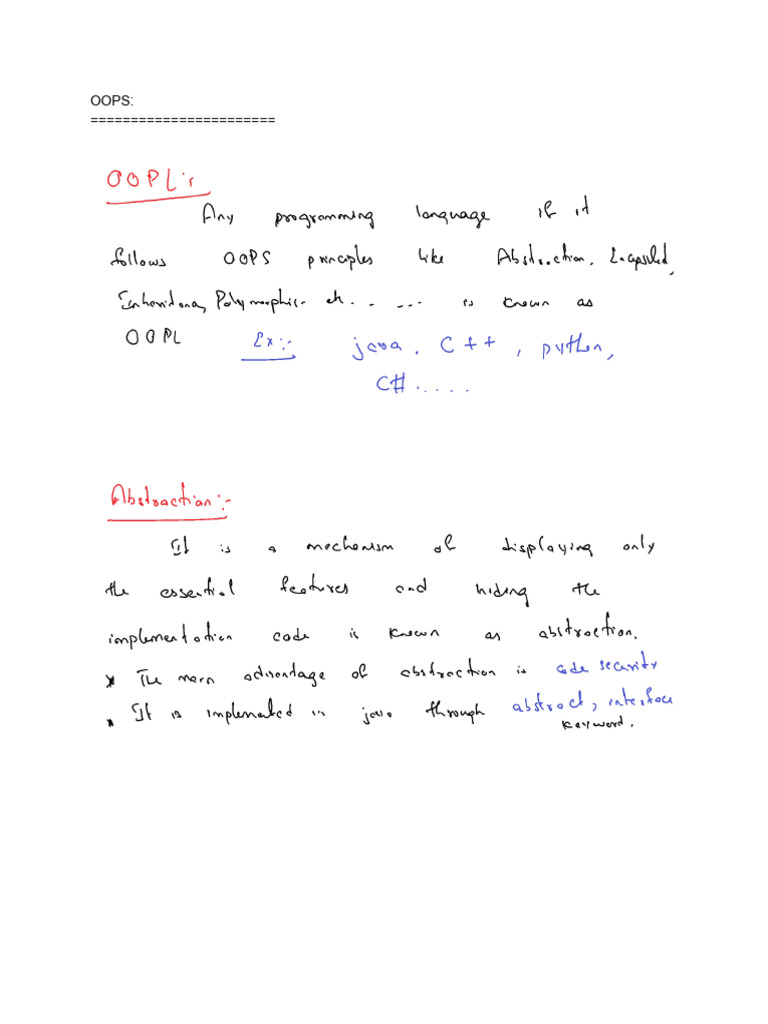 OOPS:
=======================
OOPL:
Any programming language if it
follows OOPS principles like Abstraction,
Polymorphic- etc. . . . . . is known as
OOPL Ex:- java, C++, python,
C# . . . . .
Abstraction:-
It is a mechanism of displaying only
the essential features and hiding the
implementation code is known as abstraction.
* The main advantage of abstraction is code security
* It is implemented in java through abstract, interface
keyword.